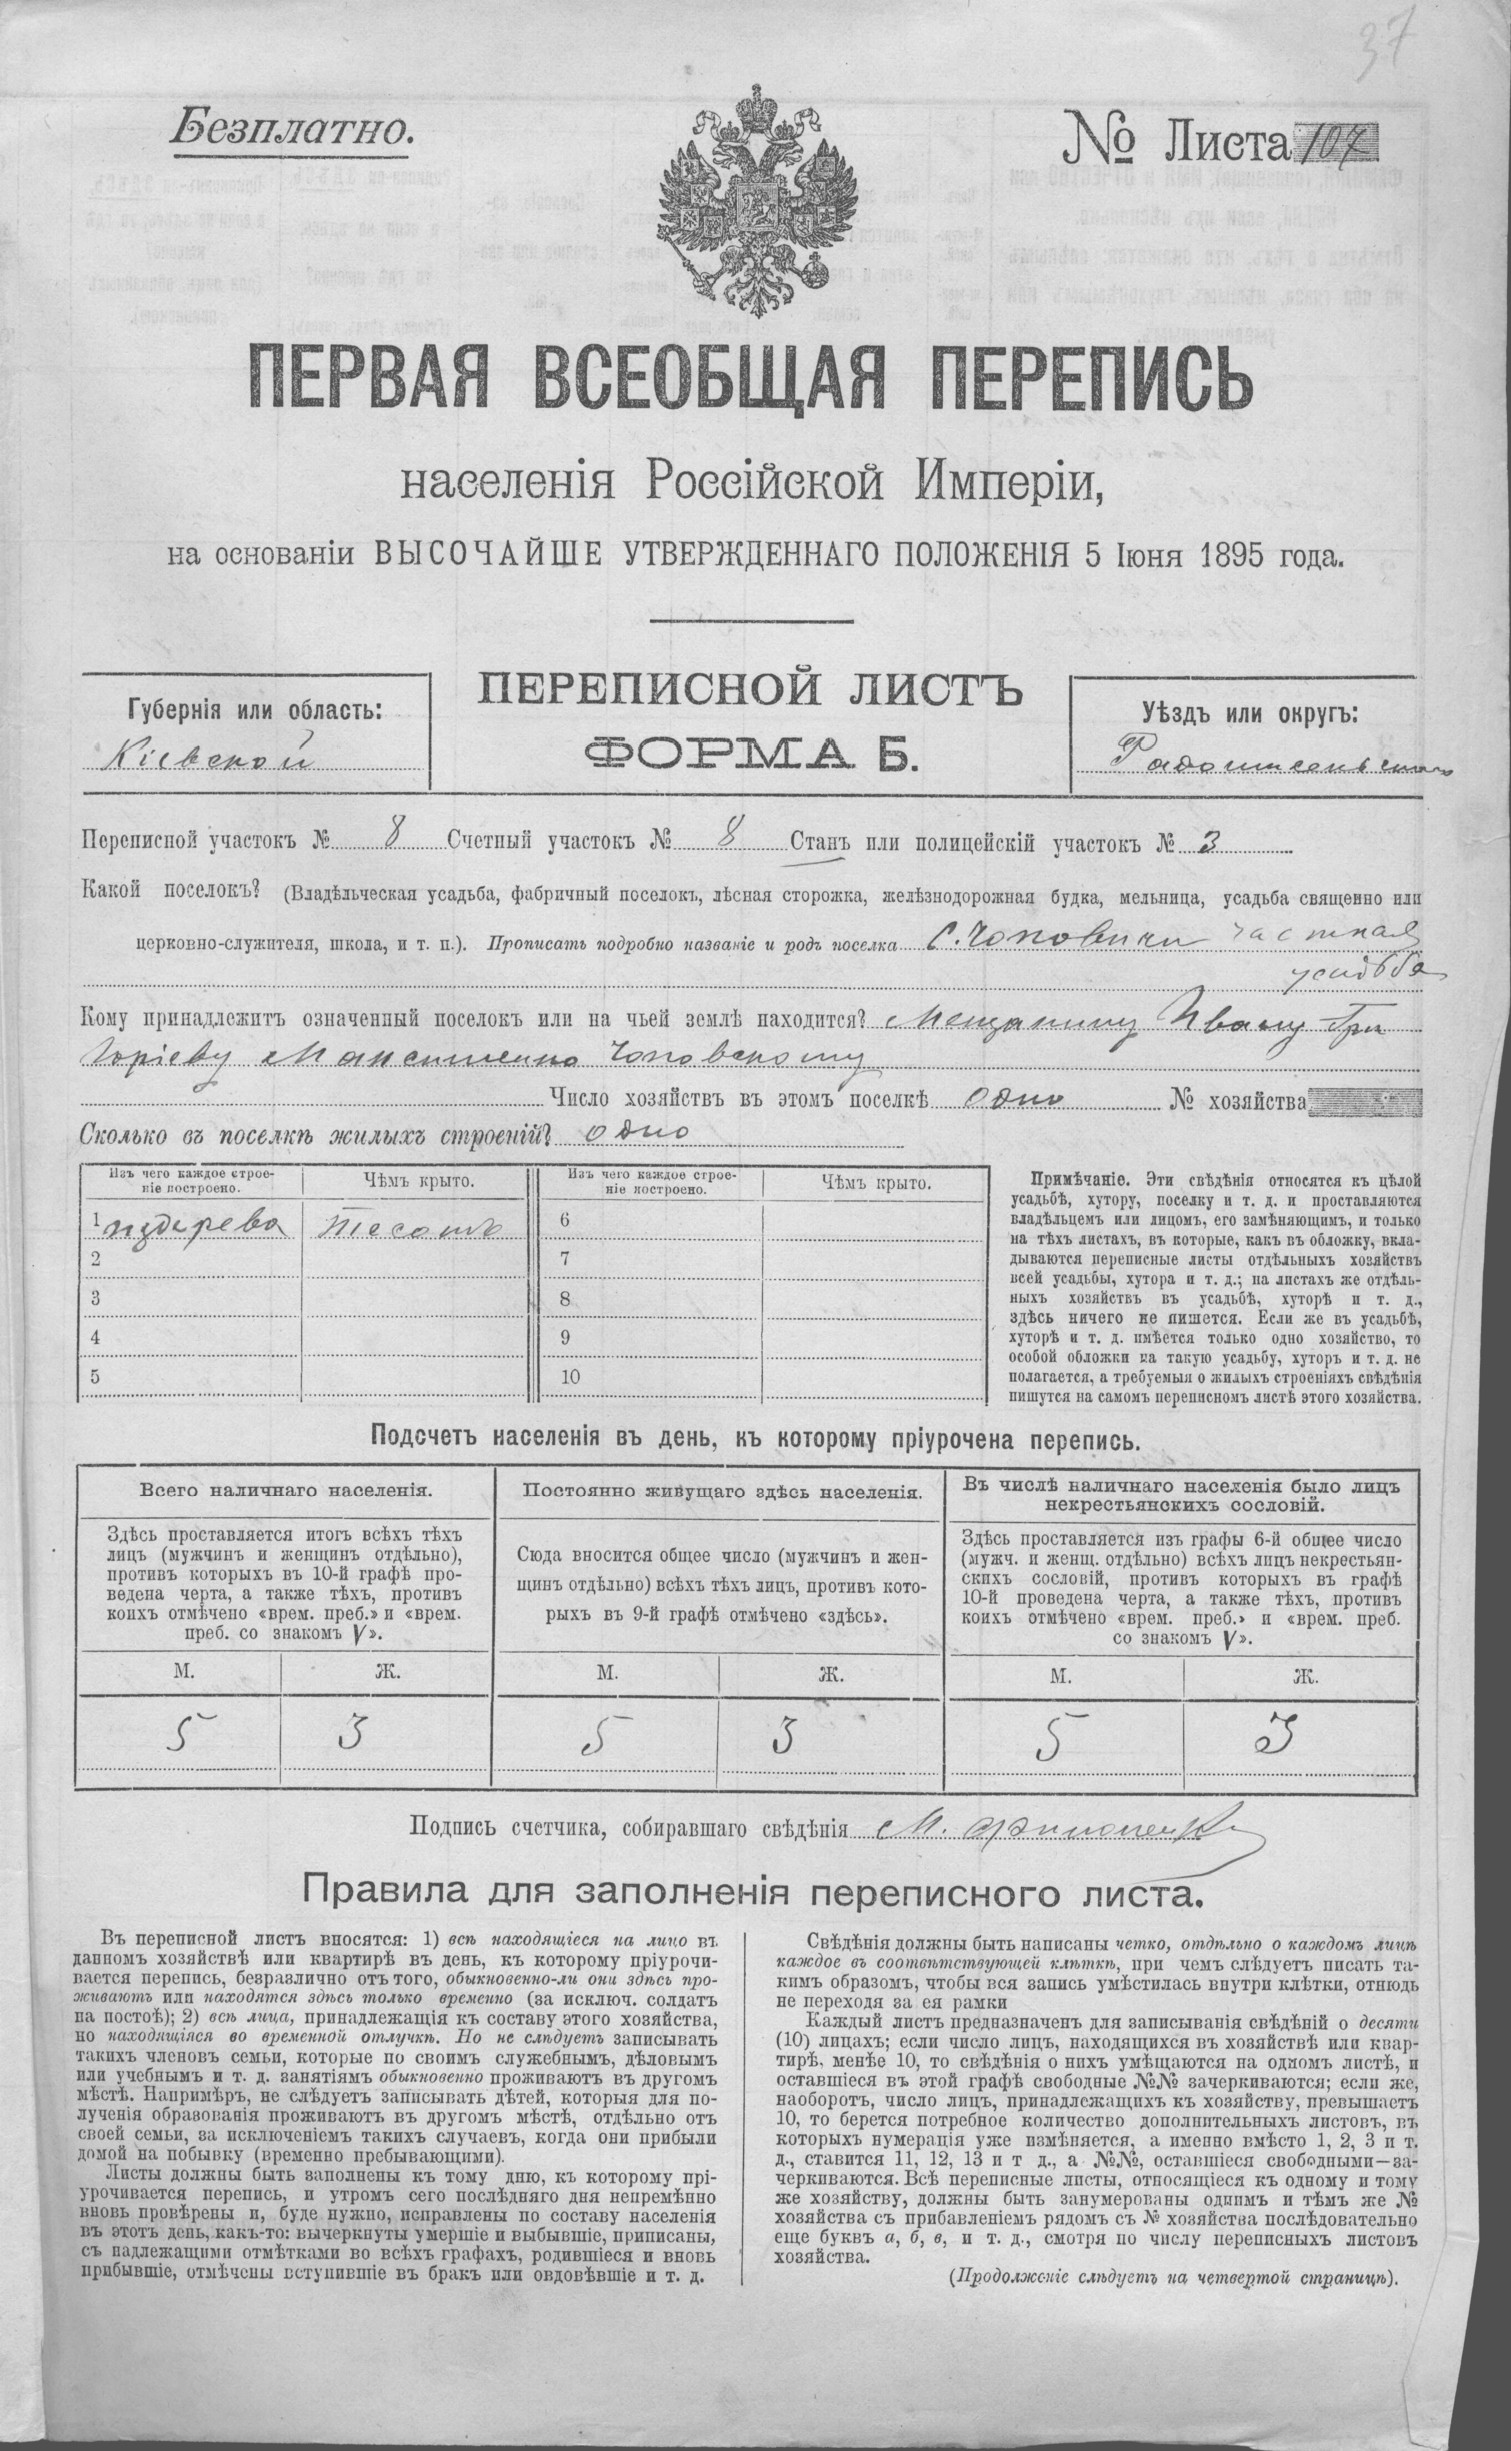 37
Безплатно.
№ Листа 107
ПЕРВАЯ ВСЕОБЩАЯ ПЕРЕПИСЬ
населенія Россійской Имперіи,
на основаніи ВЫСОЧАЙШЕ УТВЕРЖДЕННАГО ПОЛОЖЕНІЯ 5 Іюня 1895 года.
Губернія или область:
Кіевской
ПЕРЕПИСНОЙ ЛИСТЪ
ФОРМА Б.
Уѣздъ или округъ:
Переписной участокъ № 8 Счетный участокъ № 8 Станъ или полицейскій участокъ № 3
Какой поселокъ? (Владѣльческая усадьба, фабричный поселокъ, лѣсная сторожка, желѣзнодорожная будка, мельница, усадьба священно или
церковно-служителя, школа, и т. п.). Прописать подробно названіе и родъ поселка С. Чоповичи частная
усадьба
Кому принадлежитъ означенный поселокъ или на чьей землѣ находится? Мещанину Ивану Гри
горіеву Максименко Чоповскому
Число хозяйствъ въ этомъ поселкѣ одно № хозяйства
Сколько въ поселкѣ жилыхъ строеній? одно
Изъ чего каждое строе-
ніе построено.
Чѣмъ крыто.
Изъ чего каждое строе-
ніе построено.
Чѣмъ крыто.
1 издерева тесомъ 6
2 7
3 8
4 9
5 10
Примѣчаніе. Эти свѣдѣнія относятся къ цѣлой
усадьбѣ, хутору, поселку и т. д. и проставляются
владѣльцемъ или лицомъ, его замѣняющимъ, и только
на тѣхъ листахъ, въ которые, какъ въ обложку, вкла-
дываются переписные листы отдѣльныхъ хозяйствъ
всей усадьбы, хутора и т. д.; на листахъ же отдѣль-
ныхъ хозяйствъ въ усадьбѣ, хуторѣ и т. д.,
здѣсь ничего не пишется. Если же въ усадьбѣ,
хуторѣ и т. д. имѣется только одно хозяйство, то
особой обложки на такую усадьбу, хуторъ и т. д. не
полагается, а требуемыя о жилыхъ строеніяхъ свѣдѣнія
пишутся на самомъ переписномъ листѣ этого хозяйства.
Подсчетъ населенія въ день, къ которому пріурочена перепись.
Всего наличнаго населенія.
Здѣсь проставляется итогъ всѣхъ тѣхъ
лицъ (мужчинъ и женщинъ отдѣльно),
противъ которыхъ въ 10-й графѣ про-
ведена черта, а также тѣхъ, противъ
коихъ отмѣчено «врем. преб.» и «врем.
преб. со знакомъ V».
М. Ж.
5 3
Постоянно живущаго здѣсь населенія.
Сюда вносится общее число (мужчинъ и жен-
щинъ отдѣльно) всѣхъ тѣхъ лицъ, противъ кото-
рыхъ въ 9-й графѣ отмѣчено «здѣсь».
М. Ж.
5 3
Въ числѣ наличнаго населенія было лицъ
некрестьянскихъ сословій.
Здѣсь проставляется изъ графы 6-й общее число
(мужч. и женщ. отдѣльно) всѣхъ лицъ некрестьян-
скихъ сословій, противъ которыхъ въ графѣ
10-й проведена черта, а также тѣхъ, противъ
коихъ отмѣчено «врем. преб.» и «врем. преб.
со знакомъ V».
М. Ж.
5 3
Подпись счетчика, собиравшаго свѣдѣнія М.
Правила для заполненія переписного листа.
Въ переписной листъ вносятся: 1) всѣ находящіеся на лицо въ
данномъ хозяйствѣ или квартирѣ въ день, къ которому пріурочи-
вается перепись, безразлично отъ того, обыкновенно-ли они здѣсь про-
живаютъ или находятся здѣсь только временно (за исключ. солдатъ
на постоѣ); 2) всѣ лица, принадлежащія къ составу этого хозяйства,
но находящіяся во временной отлучкѣ. Но не слѣдуетъ записывать
такихъ членовъ семьи, которые по своимъ служебнымъ, дѣловымъ
или учебнымъ и т. д. занятіямъ обыкновенно проживаютъ въ другомъ
мѣстѣ. Напримѣръ, не слѣдуетъ записывать дѣтей, которыя для по-
лученія образованія проживаютъ въ другомъ мѣстѣ, отдѣльно отъ
своей семьи, за исключеніемъ такихъ случаевъ, когда они прибыли
домой на побывку (временно пребывающими).
Листы должны быть заполнены къ тому дню, къ которому прі-
урочивается перепись, и утромъ сего послѣдняго дня непремѣнно
вновь провѣрены и, буде нужно, исправлены по составу населенія
въ этотъ день, какъ-то: вычеркнуты умершіе и выбывшіе, приписаны,
съ надлежащими отмѣтками во всѣхъ графахъ, родившіеся и вновь
прибывшіе, отмѣчены вступившіе въ бракъ или овдовѣвшіе и т. д.
Свѣдѣнія должны быть написаны четко, отдѣльно о каждомъ лицѣ
каждое въ соотвѣтствующей клѣткѣ, при чемъ слѣдуетъ писать та-
кимъ образомъ, чтобы вся запись умѣстилась внутри клѣтки, отнюдь
не переходя за ея рамки
Каждый листъ предназначенъ для записыванія свѣдѣній о десяти
(10) лицахъ; если число лицъ, находящихся въ хозяйствѣ или квар-
тирѣ, менѣе 10, то свѣдѣнія о нихъ умѣщаются на одномъ листѣ, и
оставшіеся въ этой графѣ свободные №№ зачеркиваются; если же,
наоборотъ, число лицъ, принадлежащихъ къ хозяйству, превышаетъ
10, то берется потребное количество дополнительныхъ листовъ, въ
которыхъ нумерація уже измѣняется, а именно вмѣсто 1, 2, 3 и т.
д., ставится 11, 12, 13 и т д., а №№, оставшіеся свободными—за-
черкиваются. Всѣ переписные листы, относящіеся къ одному и тому
же хозяйству, должны быть занумерованы однимъ и тѣмъ же №
хозяйства съ прибавленіемъ рядомъ съ № хозяйства послѣдовательно
еще буквъ а, б, в, и т. д., смотря по числу переписныхъ листовъ
хозяйства.
(Продолженіе слѣдуетъ на четвертой страницѣ).